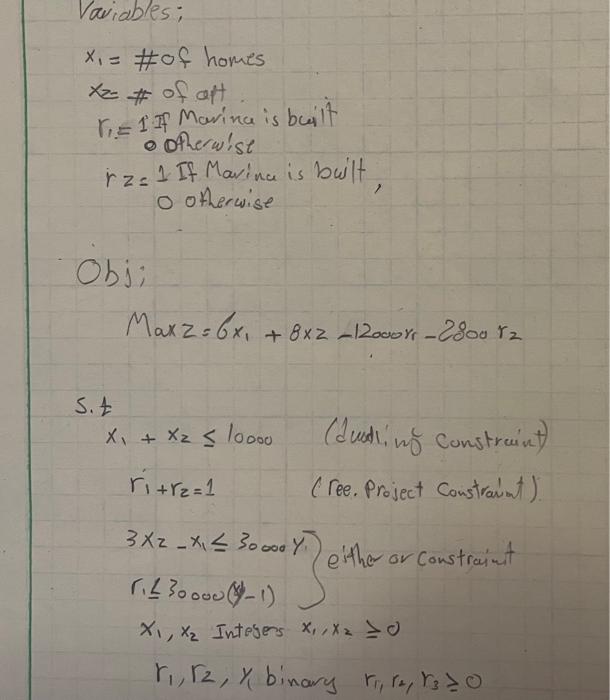 Variables;
x₁ = # of homes
x2 = # of apt.
r₁ = 1 If Marina is built
0 otherwise
r2 = 1 If Marina is built,
0 otherwise
Obj;
Max Z = 6x₁ + 8x2 - 12000r₁ - 2800 r2
S.t
x₁ + x₂ ≤ 10000 (dwelling constraint)
r₁ + r2 = 1 (ree. Project Constraint)
3x2 - x₁ ≤ 30000 Y
either or constraint
r₁ ≤ 30000(y-1)
x₁, x₂ Integers x₁, x₂ ≥ 0
r₁, r2, Y, binary r₁, r₂, r3 ≥ 0